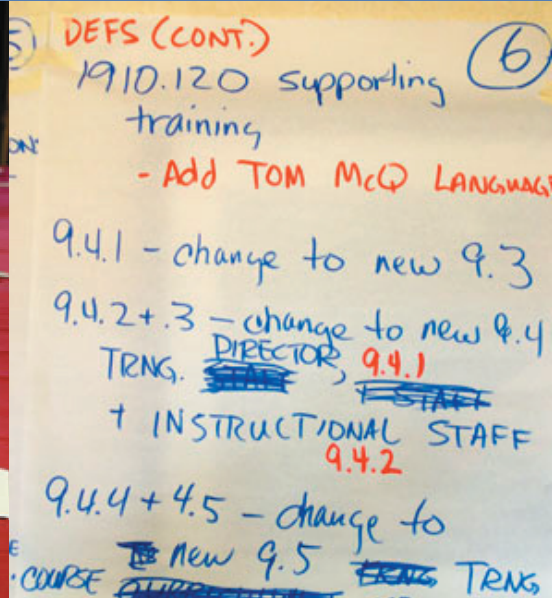 5 DEFS (CONT.) 6
1910.120 supporting
training
ON:
- Add TOM McQ LANGUAG
9.4.1 - change to new 9.3
9.4.2 + .3 - change to new 9.4
TRNG. DIRECTOR, 9.4.1
+ STAFF
+ INSTRUCTIONAL STAFF
9.4.2
9.4.4 + 4.5 - change to
E
new 9.5 TRNG
. COURSE